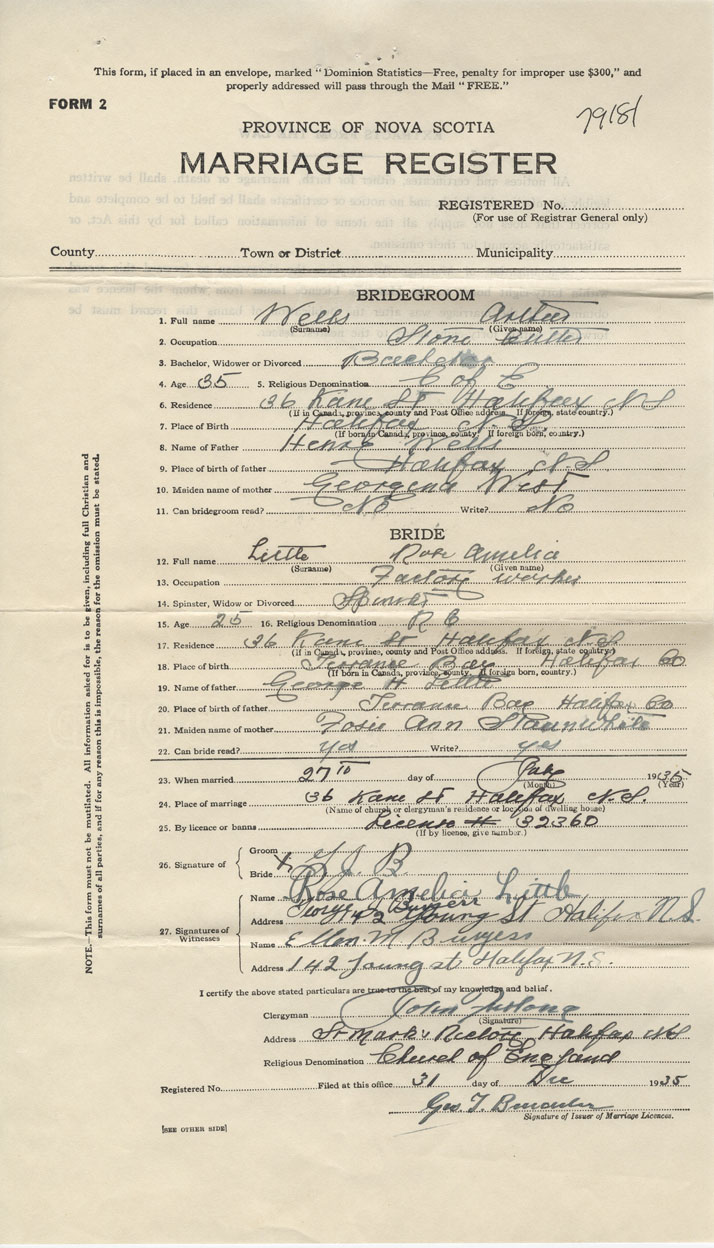 This form, if placed in an envelope, marked "Dominion Statistics—Free, penalty for improper use $300," and
properly addressed will pass through the Mail "FREE."
FORM 2
PROVINCE OF NOVA SCOTIA
MARRIAGE REGISTER
REGISTERED No.
(For use of Registrar General only)
County Town or District Municipality
BRIDEGROOM
1. Full name Wells Arthur
(Surname) (Given name)
2. Occupation Stone Cutter
3. Bachelor, Widower or Divorced Bachelor
4. Age 35 5. Religious Denomination C of E
6. Residence 36 Kane St Halifax N S
(If in Canada, province, county and Post Office address. If foreign, state country.)
7. Place of Birth Halifax N.S.
(If born in Canada, province, county. If foreign born, country.)
8. Name of Father Henry Wells
9. Place of birth of father Halifax N.S
10. Maiden name of mother Georgena West
11. Can bridegroom read? No Write? No
BRIDE
12. Full name Little Rose Amelia
(Surname) (Given name)
13. Occupation Factory worker
14. Spinster, Widow or Divorced Spinster
15. Age 25 16. Religious Denomination R C
17. Residence 36 Kane St Halifax N S
(If in Canada, province, county and Post Office address. If foreign, state country)
18. Place of birth Terrance Bay Halifax Co
(If born in Canada, province, county. If foreign born, country.)
19. Name of father George H Little
20. Place of birth of father Terrance Bay Halifax Co
21. Maiden name of mother Ann
22. Can bride read? yes Write? yes
23. When married 27th day of July 1935
(Month) (Year)
24. Place of marriage 36 Kane St Halifax N.S.
(Name of church or clergyman's residence or location of dwelling house)
25. By licence or banns License # 32360
(If by licence, give number.)
26. Signature of
Groom
Bride
27. Signatures of
Witnesses
Name Rose Amelia Little
Address 42 Young St Halifax N.S.
Name Ellen M Burgess
Address 142 Young st Halifax N.S.
I certify the above stated particulars are true to the best of my knowledge and belief.
Clergyman John Furlong
(Signature)
Address St Mark's Rectory Halifax NS
Religious Denomination Church of England
Registered No. Filed at this office 31 day of Dec 1935
Geo T.
Signature of Issuer of Marriage Licences.
[SEE OTHER SIDE]
NOTE.—This form must not be mutilated. All information asked for is to be given, including full Christian and
surnames of all parties, and if for any reason this is impossible, the reason for the omission must be stated.